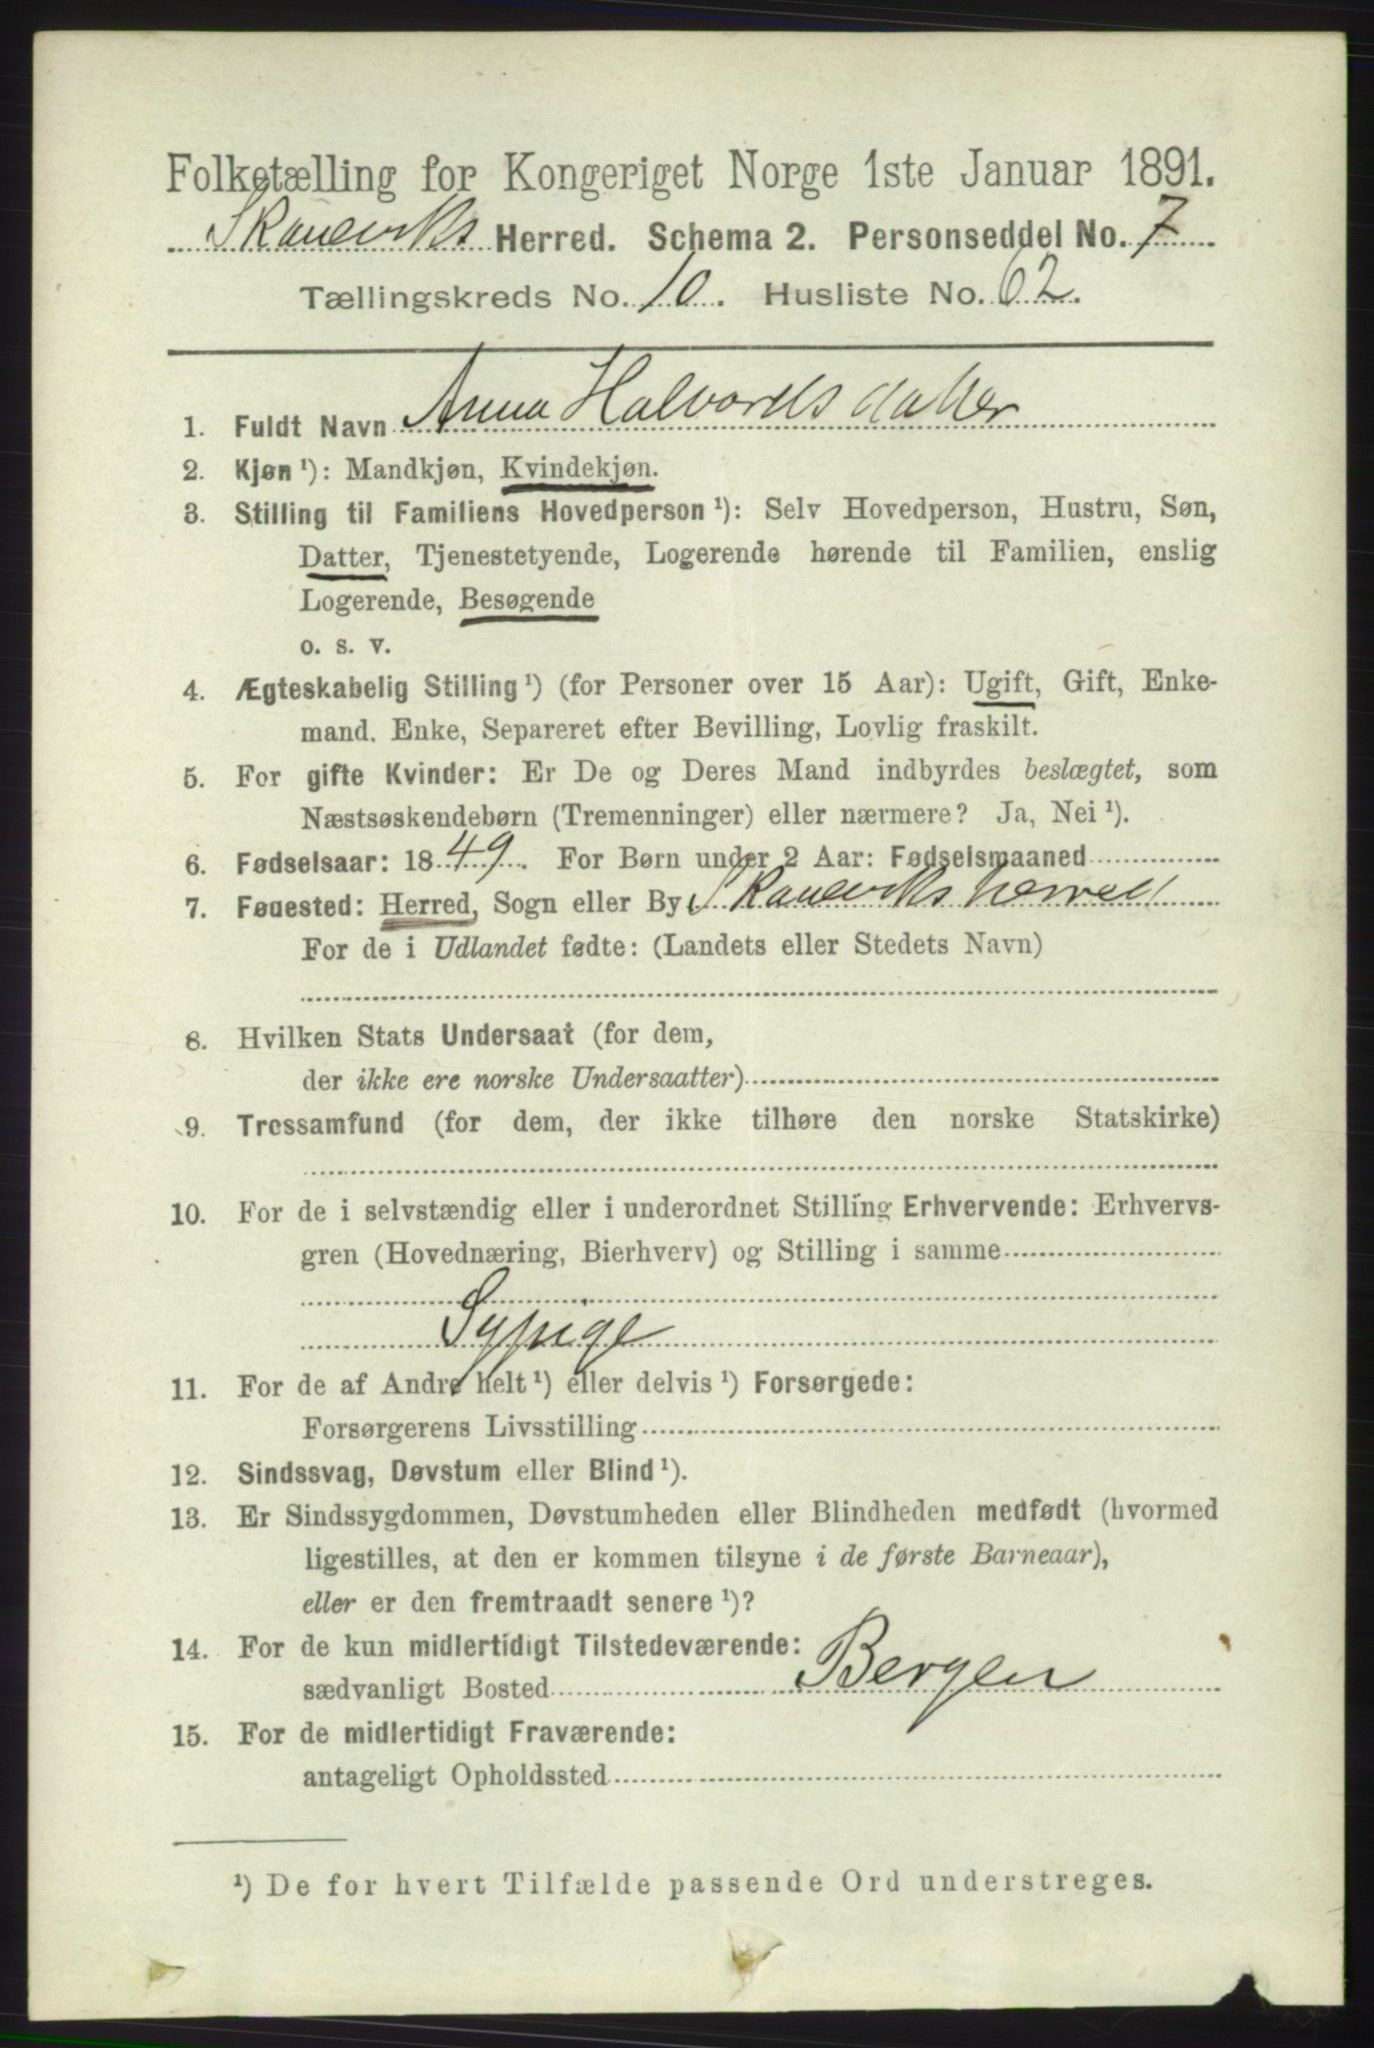 Folketælling for Kongeriget Norge 1ste Januar 1891.
Skaneviks Herred. Schema 2. Personseddel No. 7
Tællingskreds No. 10. Husliste No. 62.
1. Fuldt Navn Anna Halvordsdatter
2. Kjøn ¹): Mandkjøn, Kvindekjøn.
3. Stilling til Familiens Hovedperson ¹): Selv Hovedperson, Hustru, Søn,
Datter, Tjenestetyende, Logerende hørende til Familien, enslig
Logerende, Besøgende
o. s. v.
4. Ægteskabelig Stilling ¹) (for Personer over 15 Aar): Ugift, Gift, Enke-
mand. Enke, Separeret efter Bevilling, Lovlig fraskilt.
5. For gifte Kvinder: Er De og Deres Mand indbyrdes beslægtet, som
Næstsøskendebørn (Tremenninger) eller nærmere? Ja, Nei ¹).
6. Fødselsaar: 1849. For Børn under 2 Aar: Fødselsmaaned
7. Føuested: Herred, Sogn eller By Skaneviks herred
For de i Udlandet fødte: (Landets eller Stedets Navn)
8. Hvilken Stats Undersaat (for dem,
der ikke ere norske Undersaatter)
9. Trossamfund (for dem, der ikke tilhøre den norske Statskirke)
10. For de i selvstændig eller i underordnet Stilling Erhvervende: Erhvervs-
gren (Hovednæring, Bierhverv) og Stilling i samme
Sypige
11. For de af Andre helt ¹) eller delvis ¹) Forsørgede:
Forsørgerens Livsstilling
12. Sindssvag, Døvstum eller Blind ¹).
13. Er Sindssygdommen, Døvstumheden eller Blindheden medfødt (hvormed
ligestilles, at den er kommen tilsyne i de første Barneaar),
eller er den fremtraadt senere ¹)?
14. For de kun midlertidigt Tilstedeværende:
sædvanligt Bosted Bergen
15. For de midlertidigt Fraværende:
antageligt Opholdssted
¹) De for hvert Tilfælde passende Ord understreges.